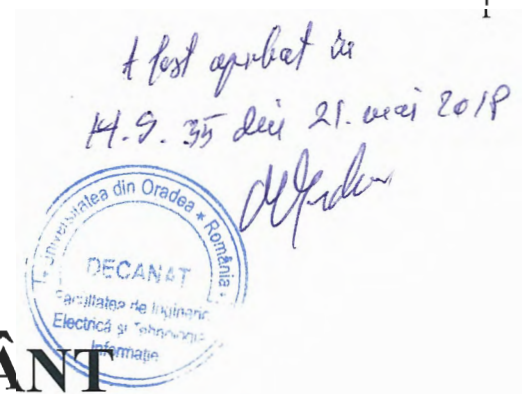 A fost aprobat în
H.S. 35 din 21. mai 2018
Universitatea din Oradea * România *
DECANAT
Facultatea de Inginerie
Electrică și Tehnologia
Informației
ÂNT